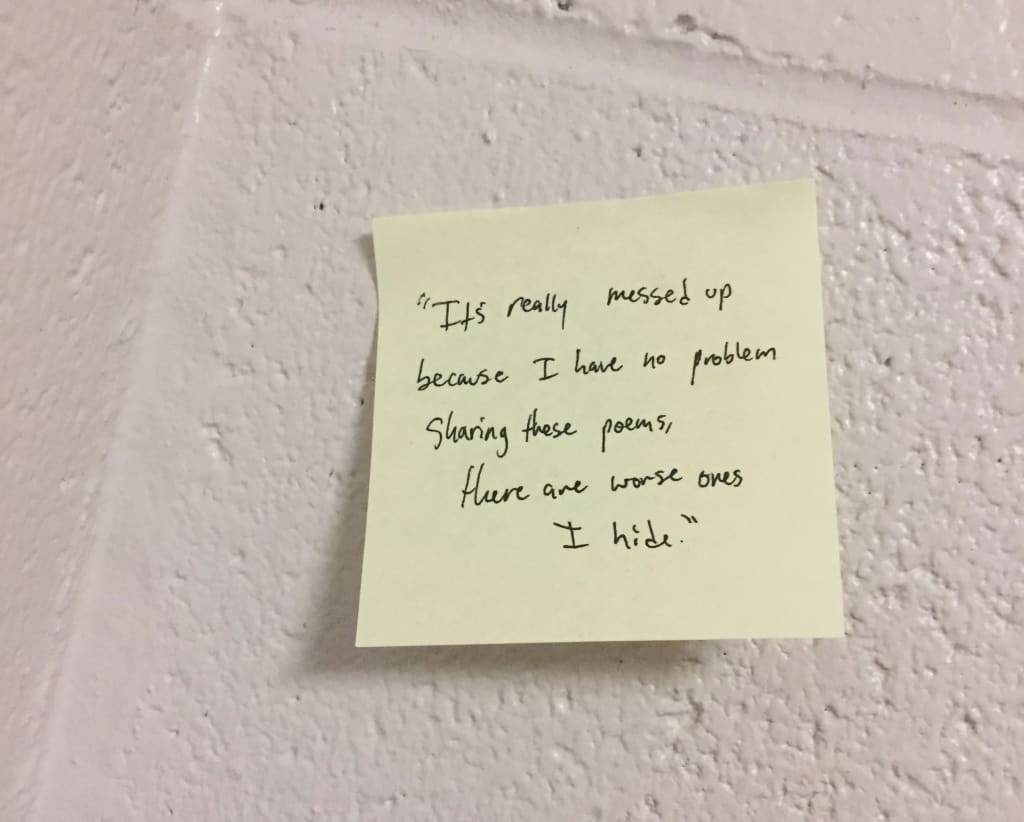 "It's really messed up
because I have no problem
Sharing these poems,
there are worse ones
I hide."